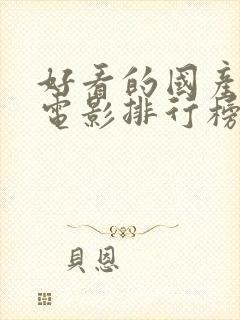 好看的國產
電影排行榜
貝恩